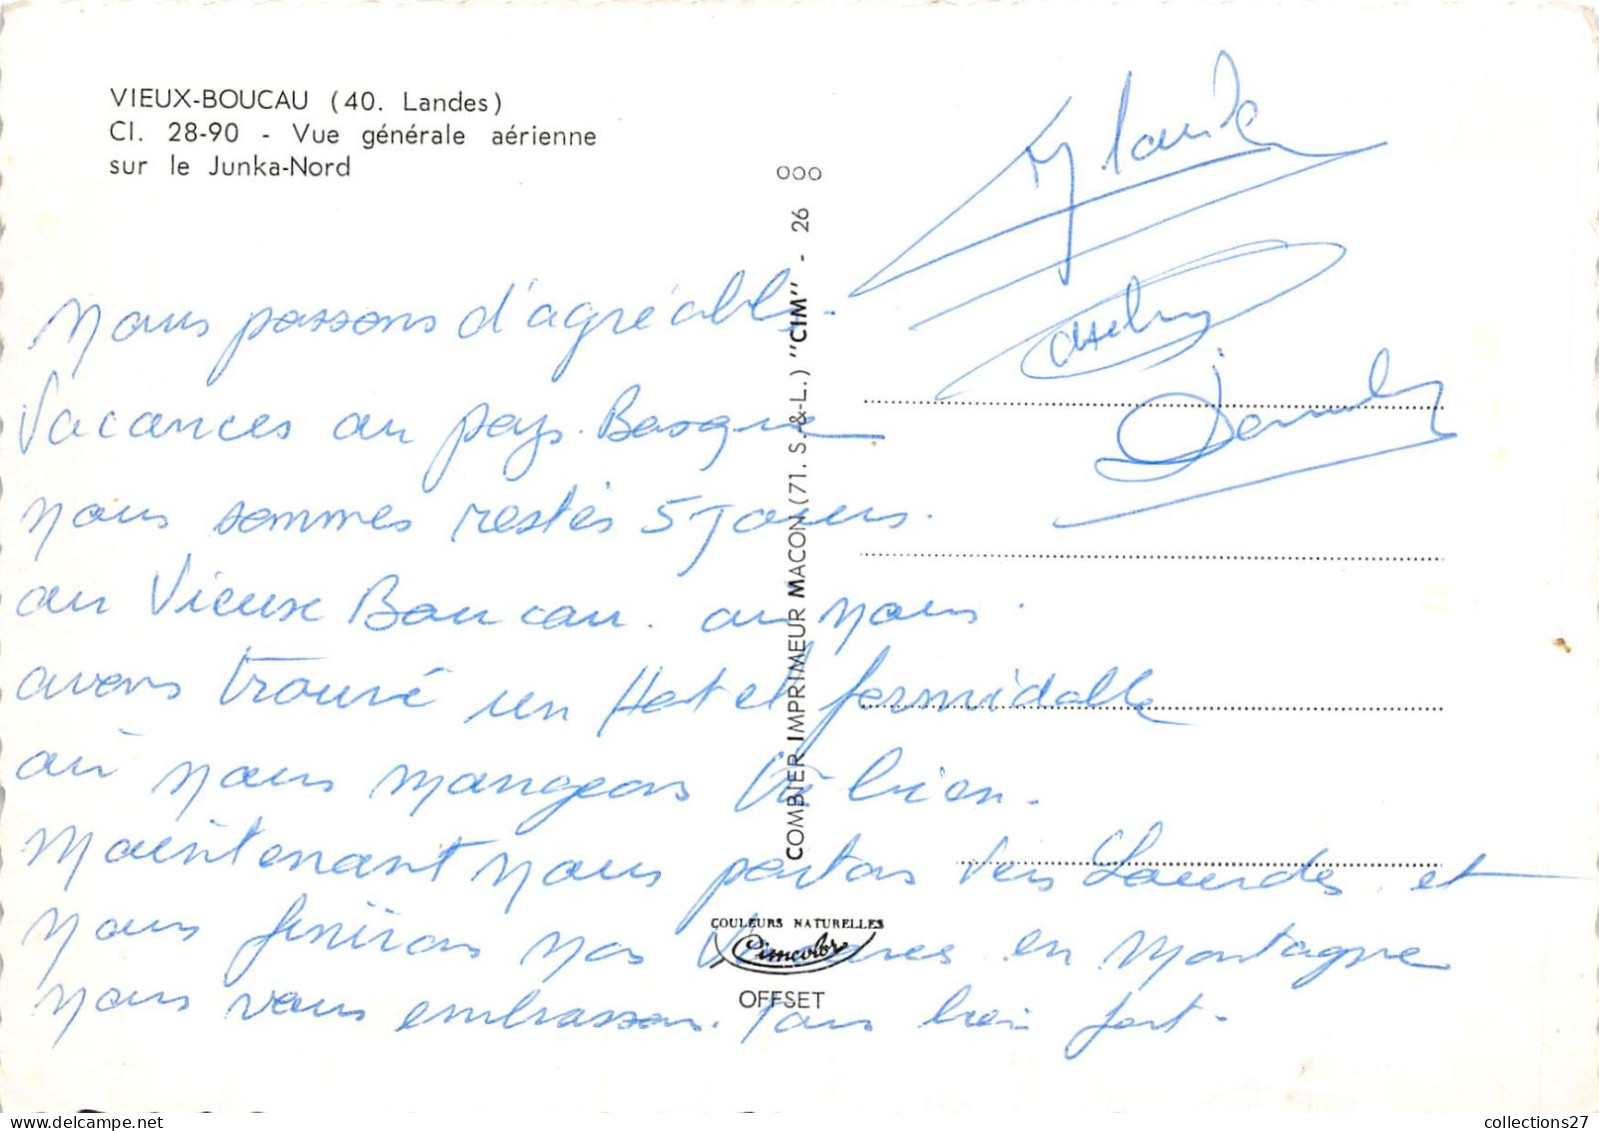 VIEUX-BOUCAU (40. Landes)
Cl. 28-90 - Vue générale aérienne
sur le Junka-Nord
COMBIER IMPRIMEUR MACON (71. S.-&-L.) "CIM" - 26 000
Nous passons d'agréable
Vacances au pays Basque
nous sommes restés 5 Jours.
au Vieux Boucau. ou nous
avons trouvé un Hotel formidable
où nous mangeons bien.
Maintenant nous partons vers Lourdes et
nous finirons nos Vacances en Montagne
nous vous embrassons. Tous bien fort.
COULEURS NATURELLES
Cimcolor
OFFSET
collections27